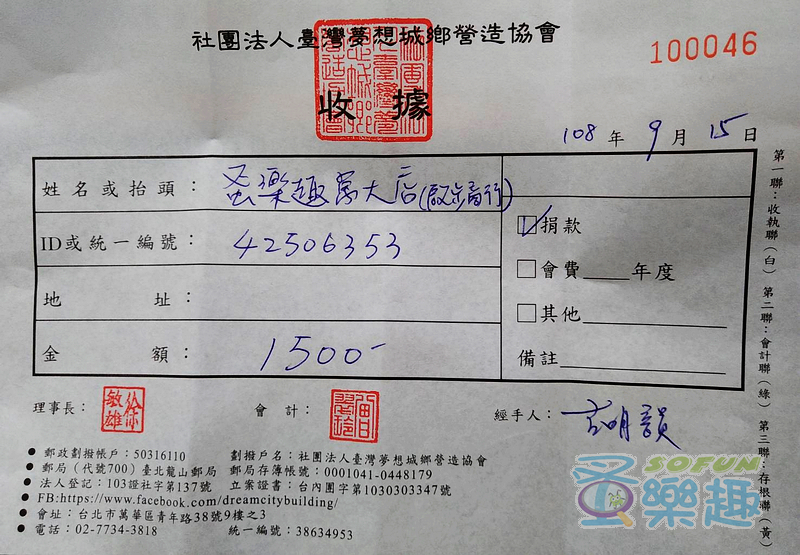 社團法人臺灣夢想城鄉營造協會
100046
收據
108年9月15日
姓名或抬頭：蛋樂趣萬大店
ID或統一編號：42506353
地址：
金額：1500-
捐款
會費____年度
其他
備註
第一聯：收執聯（白） 第二聯：會計聯（綠） 第三聯：存根聯（黃）
理事長：
會計：
經手人：
● 郵政劃撥帳戶：50316110 劃撥戶名：社團法人臺灣夢想城鄉營造協會
● 郵局（代號700）臺北龍山郵局 郵局存簿帳號：0001041-0448179
● 法人登記：103證社字第137號 立案證書：台內團字第1030303347號
● FB:https://www.facebook.com/dreamcitybuilding/
● 會址：台北市萬華區青年路38號9樓之3
● 電話：02-7734-3818 統一編號：38634953
SOFUN
蛋樂趣